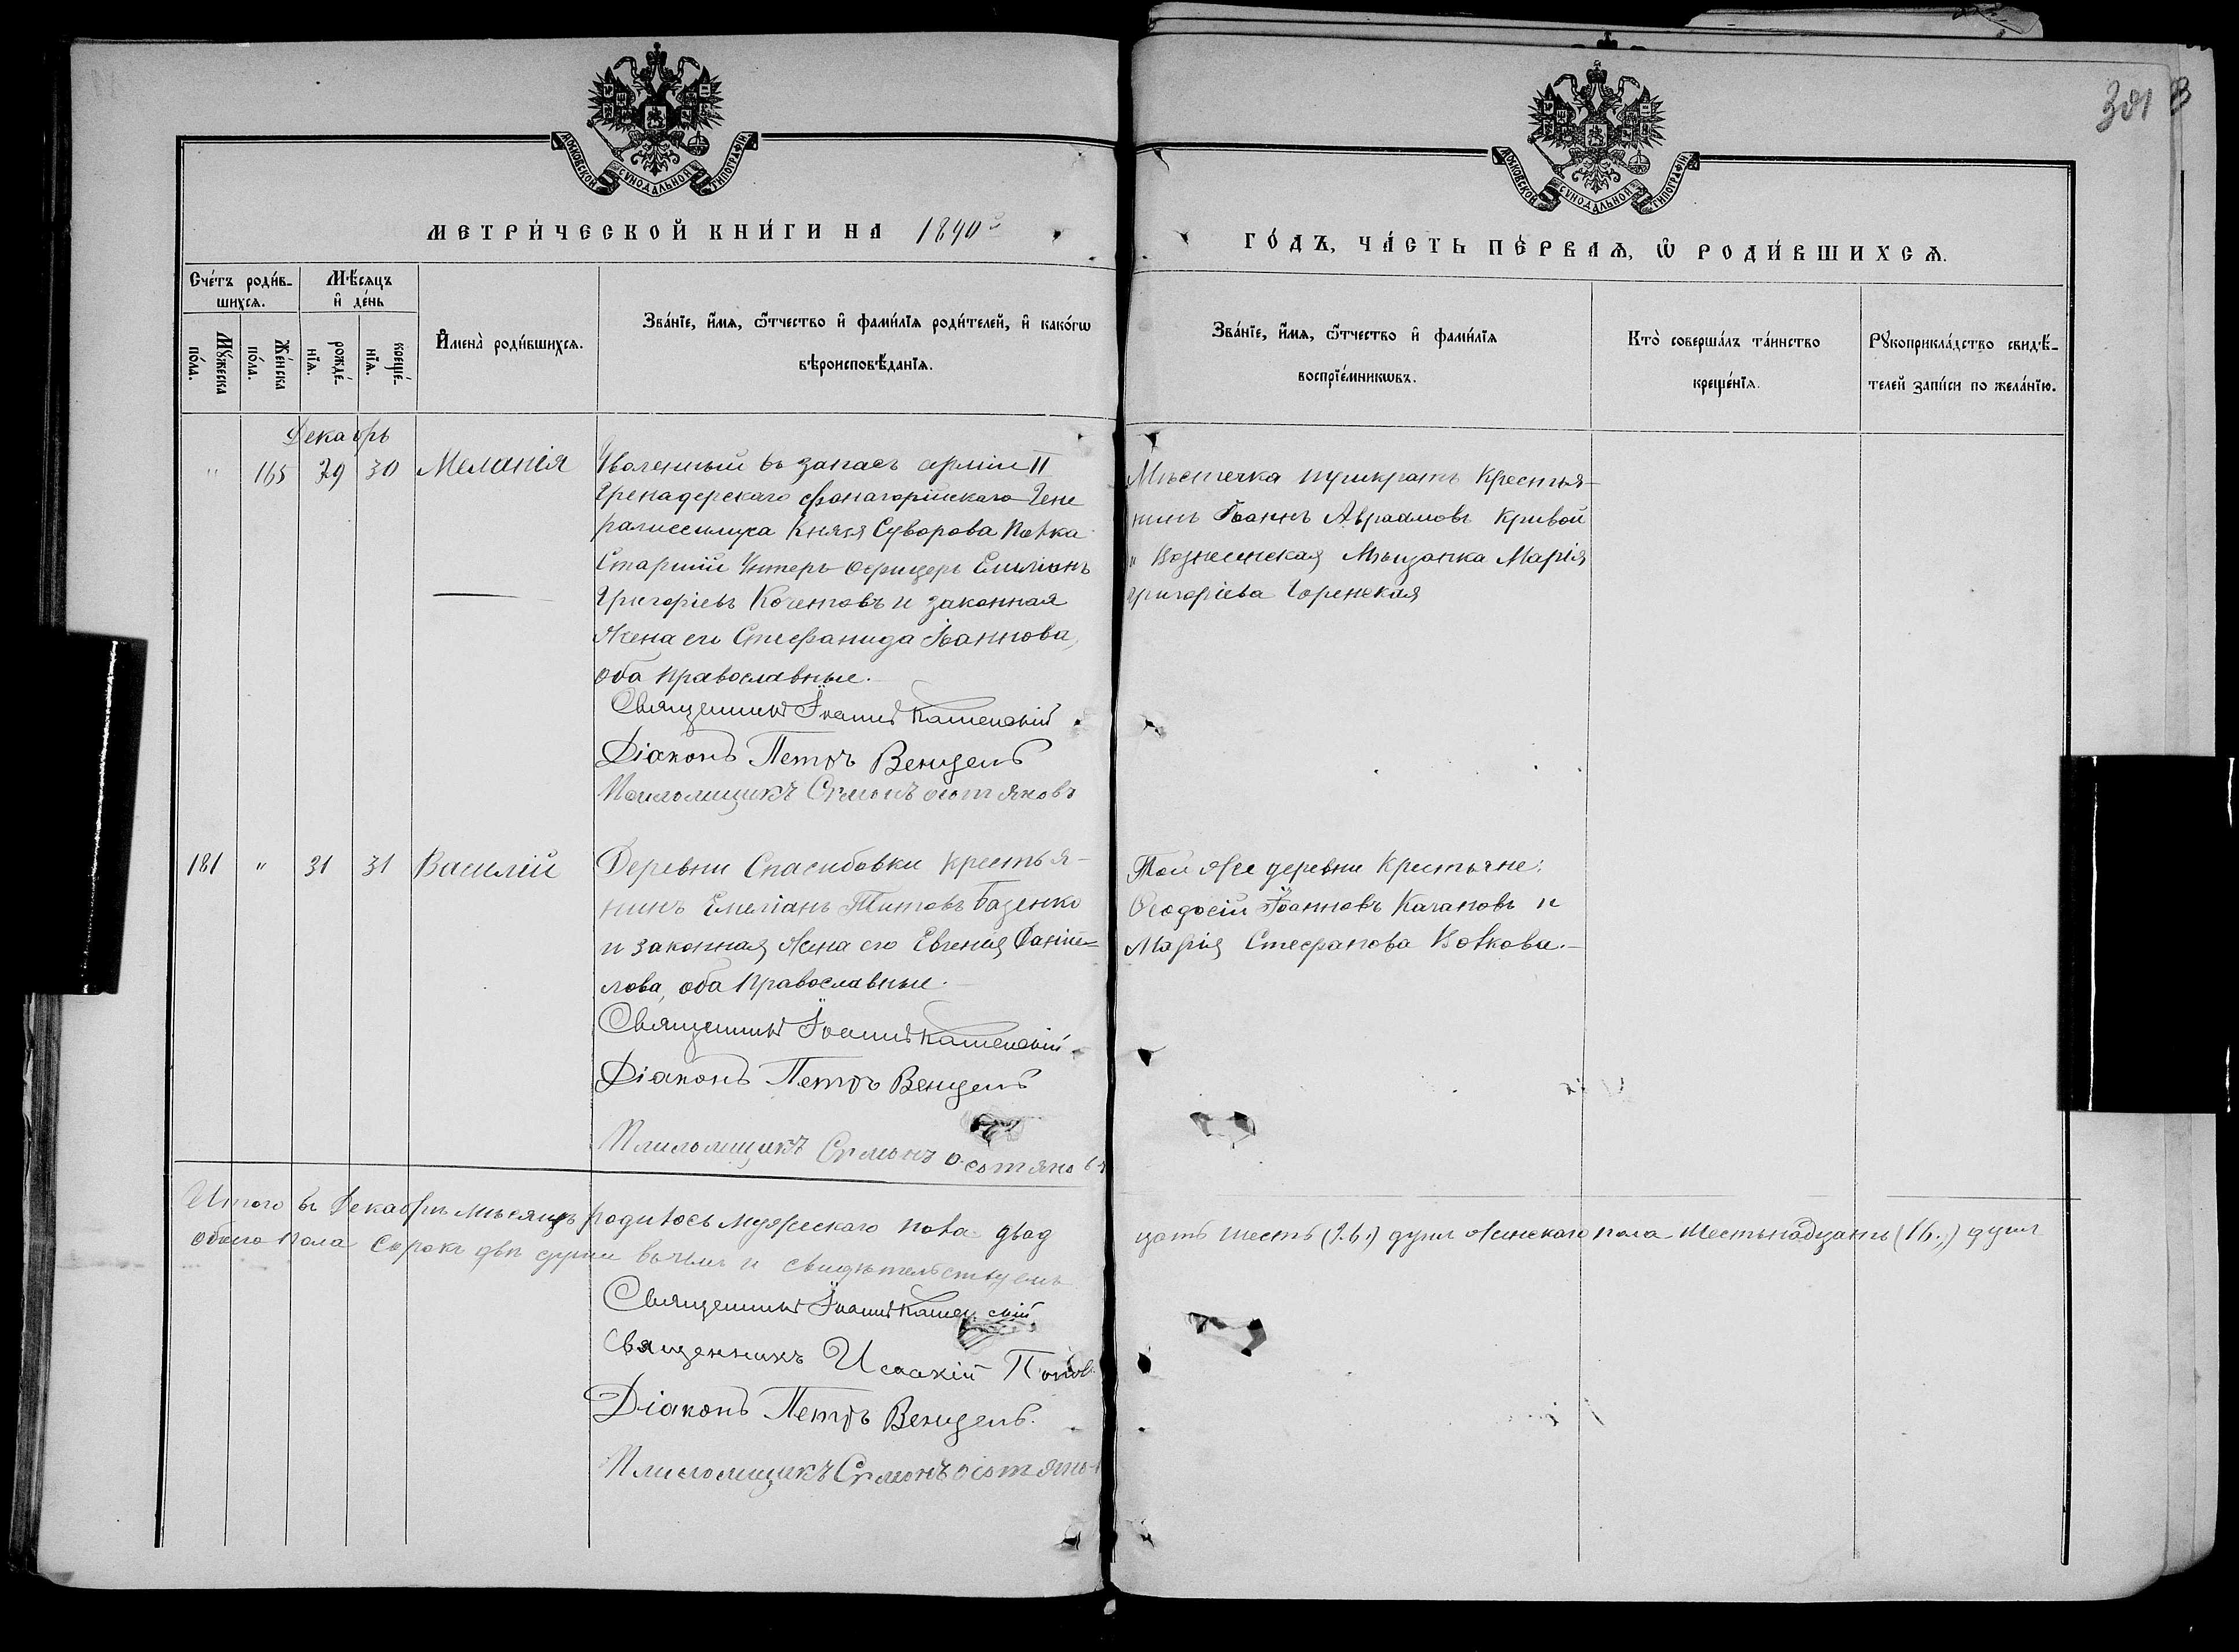 301
МОСКОВСКОЙ СѴНОДАЛЬНОЙ ТИПОГРАФІИ
МОСКОВСКОЙ СѴНОДАЛЬНОЙ ТИПОГРАФІИ
МЕТРИ́ЧЕСКОЙ КНИ́ГИ НА 1890й
ГО́ДЪ, ЧА́СТЬ ПЕ́РВАѦ, Ѡ҆ РОДИ́ВШИХСѦ.
Сче́тъ роди́в-
шихсѧ.
Мѣ́сѧцъ
и҆ де́нь
Мꙋ́жеска
по́ла.
Же́нска
по́ла.
рожде́-
нїѧ.
креще́-
нїѧ.
И҆мена̀ роди́вшихсѧ.
Зва́нїе, и҆́мѧ, ѻ҆́тчество и҆ фами́лїѧ роди́телей, и҆ како́гѡ
вѣроисповѣ́данїѧ.
Зва́нїе, и҆́мѧ, ѻ҆́тчество и҆ фами́лїѧ
воспрїе́мникѡвъ.
Кто̀ соверша́лъ та́инство
креще́нїѧ.
Рꙋкоприкла́дство свидѣ́-
телей за́писи по жела́нїю.
Декабрь
" 165 29 30 Меланія
Уволенный въ запасъ арміи II
Гренадерскаго Фанагорійскаго Гене
ралиссимуса Князя Суворова Полка
Старшій Унтеръ-офицеръ Емиліанъ
Григоріевъ Кочетовъ и законная
Жена его Стефанида Іоаннова,
оба православные.
Священникъ Іоаннъ Каменскій
Діаконъ Петръ Венцель
Псаломщикъ Сѵмонъ Остяновъ
Мѣстечка крестья-
нинъ Іоаннъ Авраамовъ Кривой
и Вознесенская Мѣщанка Марія
Григоріева Горенская
181 " 31 31 Василій
Деревни Спасибовки крестья-
нинъ Емеліанъ Титовъ Базенко
и законная Жена его Евгенія Даніи-
лова, оба православные.
Священникъ Іоаннъ Каменскій
Діаконъ Петръ Венцель
Псаломщикъ Сѵмонъ Остяновъ
Той же деревни Крестьяне:
Ѳеодосій Іоанновъ Качановъ и
Марія Стефанова Волкова.
Итого въ Декабрѣ мѣсяцѣ родилось мужескаго пола двад
цать шесть (26.) душъ женскаго пола шестьнадцать (16.) душъ
обоего пола сорокъ двѣ души въ чемъ и свидѣтельствуемъ
Священникъ Іоаннъ Каменскій
Священникъ Исаакій Попов
Діаконъ Петръ Венцель.
Псаломщикъ Сѵмонъ Остяно